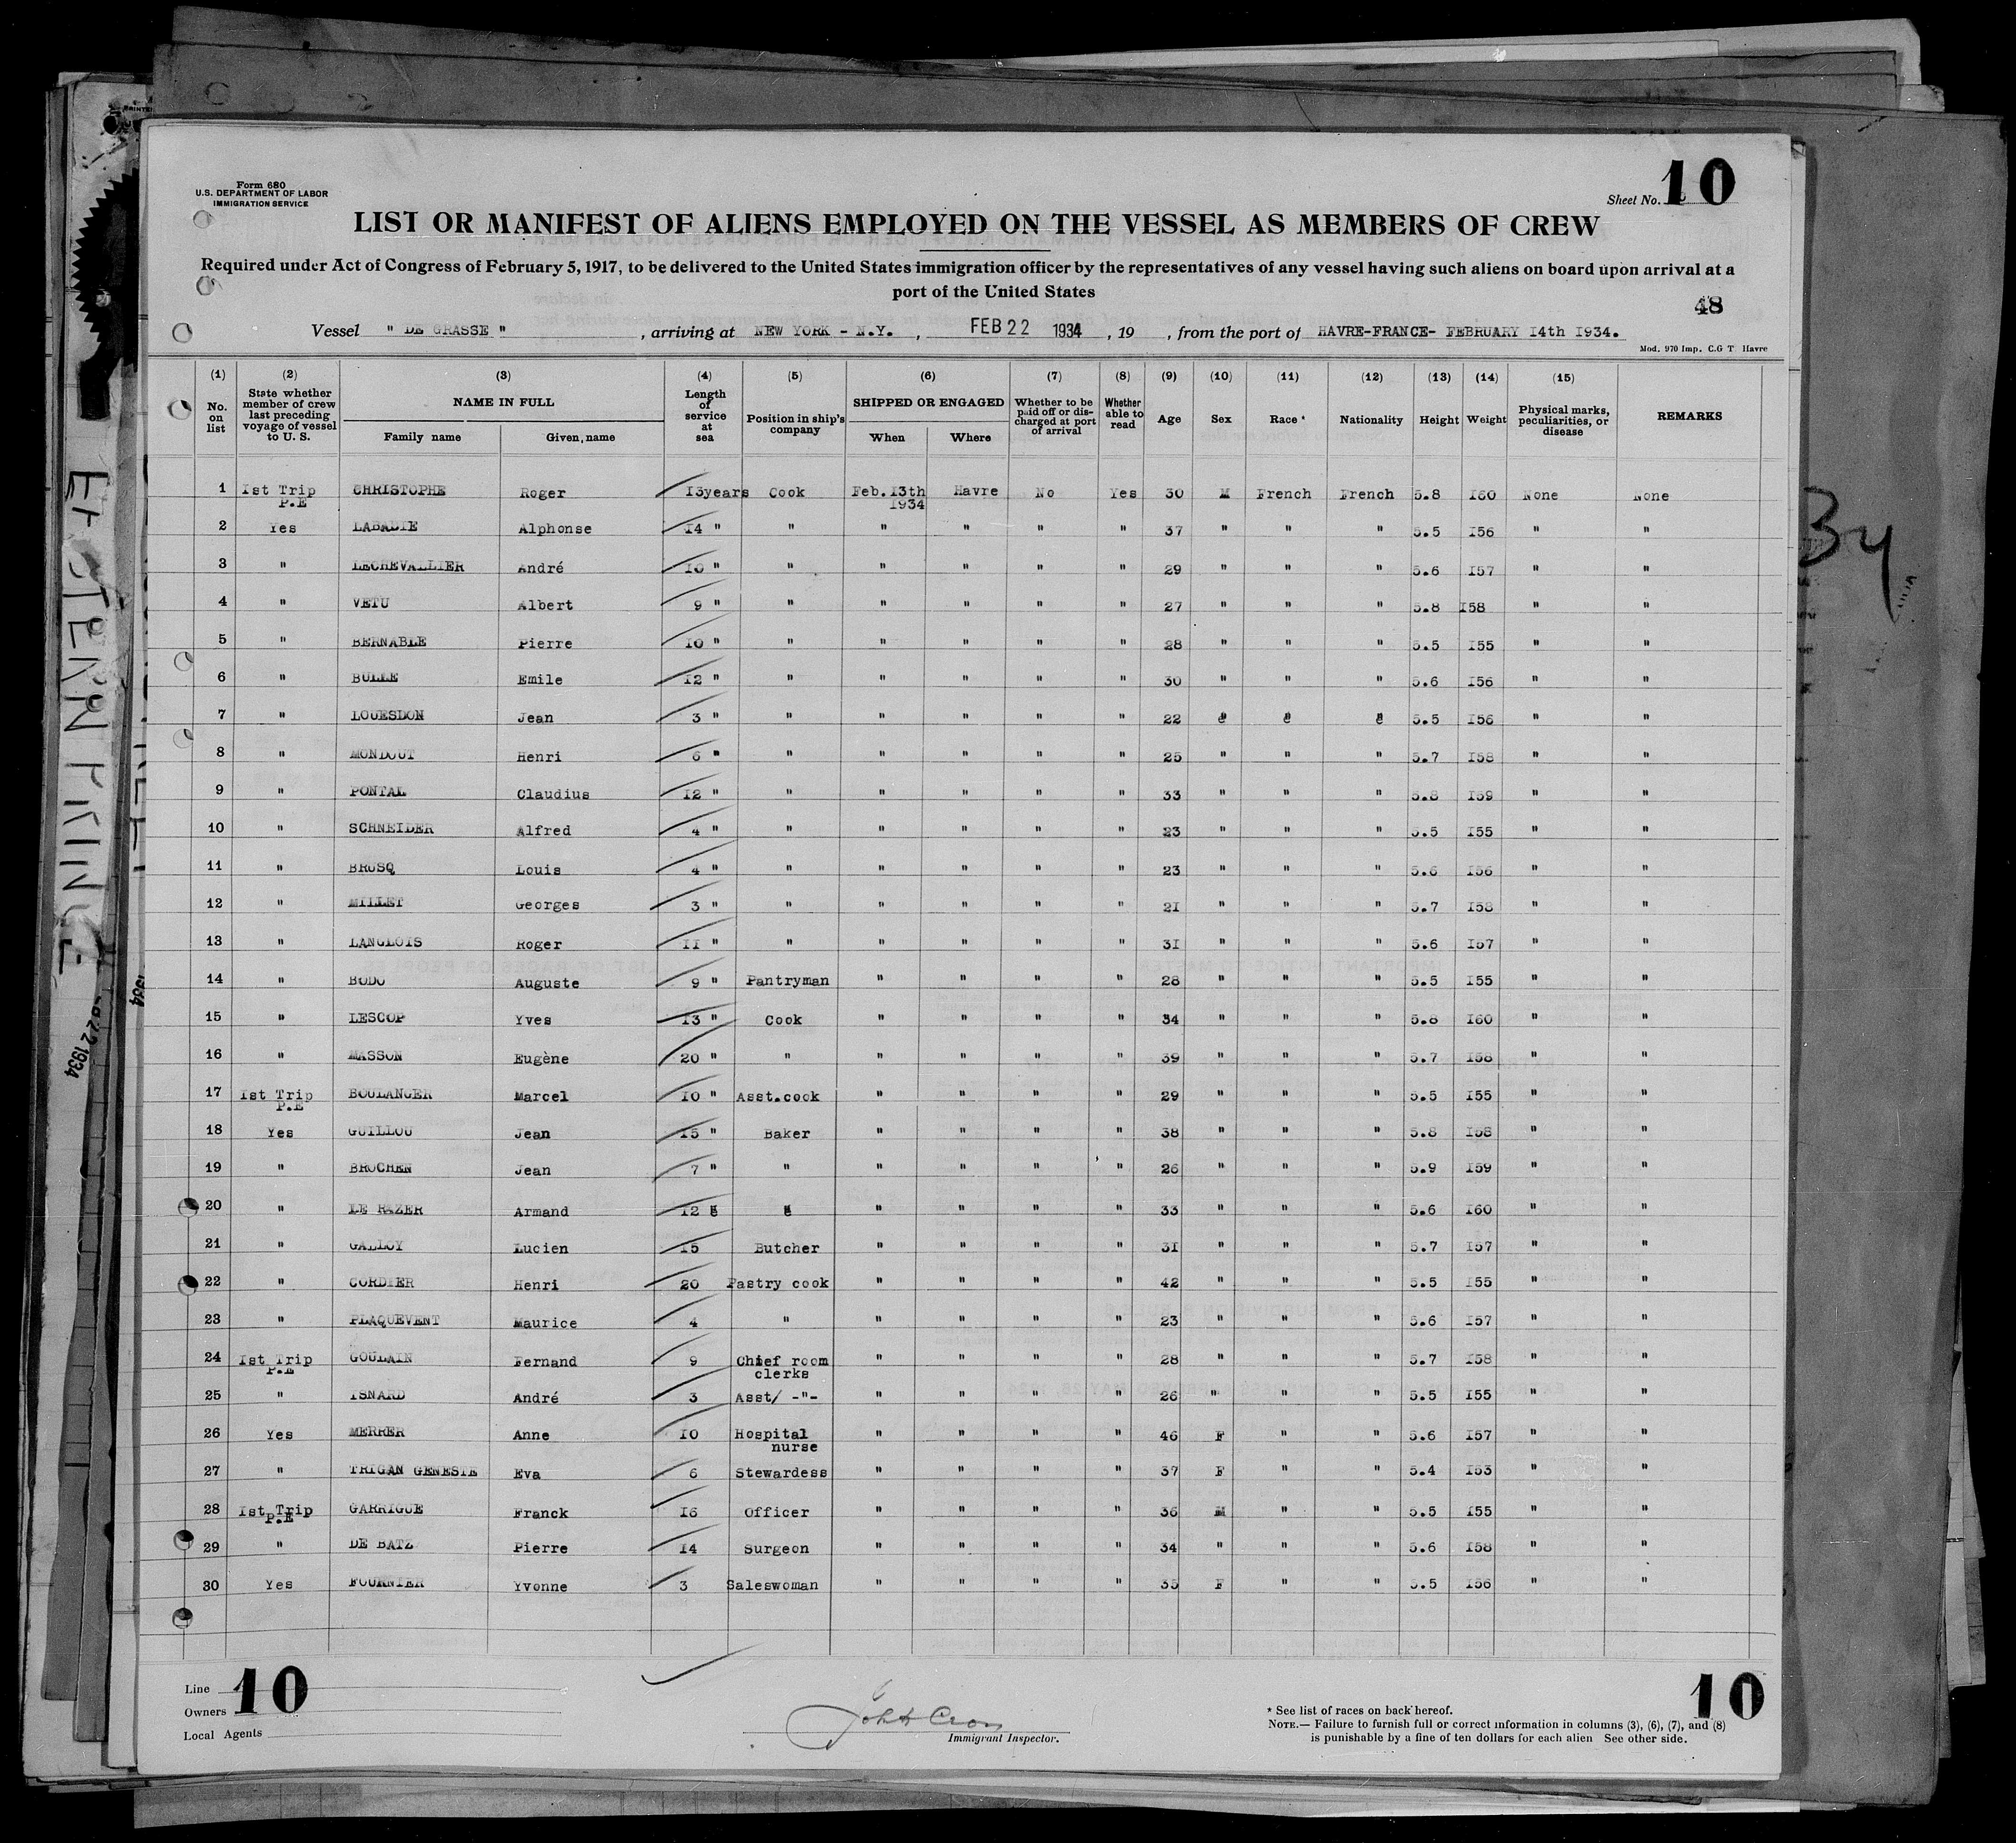 Form 680
U.S. DEPARTMENT OF LABOR
IMMIGRATION SERVICE
Sheet No. 10
LIST OR MANIFEST OF ALIENS EMPLOYED ON THE VESSEL AS MEMBERS OF CREW
Required under Act of Congress of February 5, 1917, to be delivered to the United States immigration officer by the representatives of any vessel having such aliens on board upon arrival at a
port of the United States
48
Vessel " DE GRASSE " , arriving at NEW YORK - N.Y. , FEB 22 1934 , 19 , from the port of HAVRE-FRANCE- FEBRUARY 14th 1934.
Mod. 970 Imp. C.G T Havre
(1) No. on list (2) State whether member of crew last preceding voyage of vessel to U. S. (3) NAME IN FULL Family name Given name (4) Length of service at sea (5) Position in ship's company (6) SHIPPED OR ENGAGED When Where (7) Whether to be paid off or discharged at port of arrival (8) Whether able to read (9) Age (10) Sex (11) Race * (12) Nationality (13) Height (14) Weight (15) Physical marks, peculiarities, or disease REMARKS
1 Ist Trip P.E CHRISTOPHE Roger 13years Cook Feb.13th 1934 Havre No Yes 30 M French French 5.8 I60 None None
2 Yes LABADIE Alphonse 14 " " " " " " 37 " " " 5.5 I56 " "
3 " LECHEVALLIER André 10 " " " " " " 29 " " " 5.6 I57 " "
4 " VETU Albert 9 " " " " " " 27 " " " 5.8 I58 " "
5 " BERNABLE Pierre 10 " " " " " " 28 " " " 5.5 I55 " "
6 " BULLE Emile 12 " " " " " " 30 " " " 5.6 I56 " "
7 " LOUESDON Jean 3 " " " " " " 22 " " " 5.5 I56 " "
8 " MONDOUT Henri 6 " " " " " " 25 " " " 5.7 I58 " "
9 " PONTAL Claudius 12 " " " " " " 33 " " " 5.8 I59 " "
10 " SCHNEIDER Alfred 4 " " " " " " 23 " " " 5.5 I55 " "
11 " BRUSQ Louis 4 " " " " " " 23 " " " 5.6 I56 " "
12 " MILLET Georges 3 " " " " " " 21 " " " 5.7 I58 " "
13 " LANGLOIS Roger 11 " " " " " " 31 " " " 5.6 I57 " "
14 " BODO Auguste 9 " Pantryman " " " " 28 " " " 5.5 I55 " "
15 " LESCOP Yves 13 " Cook " " " " 34 " " " 5.8 I60 " "
16 " MASSON Eugène 20 " " " " " " 39 " " " 5.7 I58 " "
17 Ist Trip P.E BOULANGER Marcel 10 " Asst.cook " " " " 29 " " " 5.5 I55 " "
18 Yes GUILLOU Jean 15 " Baker " " " " 38 " " " 5.8 I58 " "
19 " BROCHEN Jean 7 " " " " " " 26 " " " 5.9 I59 " "
20 " LE RAZER Armand 12 " " " " " " 33 " " " 5.6 I60 " "
21 " GALLOY Lucien 15 Butcher " " " " 31 " " " 5.7 I57 " "
22 " CORDIER Henri 20 Pastry cook " " " " 42 " " " 5.5 I55 " "
23 " PLAQUEVENT Maurice 4 " " " " " 23 " " " 5.6 I57 " "
24 Ist Trip P.E GOULAIN Fernand 9 Chief room clerks " " " " 28 " " " 5.7 I58 " "
25 " ISNARD André 3 Asst/ -"- " " " " 26 " " " 5.5 I55 " "
26 Yes MERRER Anne 10 Hospital nurse " " " " 46 F " " 5.6 I57 " "
27 " TRIGAN GENESTE Eva 6 Stewardess " " " " 37 F " " 5.4 I53 " "
28 Ist Trip P.E GARRIGUE Franck 16 Officer " " " " 36 M " " 5.5 I55 " "
29 " DE BATZ Pierre 14 Surgeon " " " " 34 " " " 5.6 I58 " "
30 Yes FOURNIER Yvonne 3 Saleswoman " " " " 35 F " " 5.5 I56 " "
Line 10
Owners
Local Agents
Immigrant Inspector.
* See list of races on back hereof.
NOTE.— Failure to furnish full or correct information in columns (3), (6), (7), and (8)
is punishable by a fine of ten dollars for each alien See other side.
10
34
EASTERN PRINCE